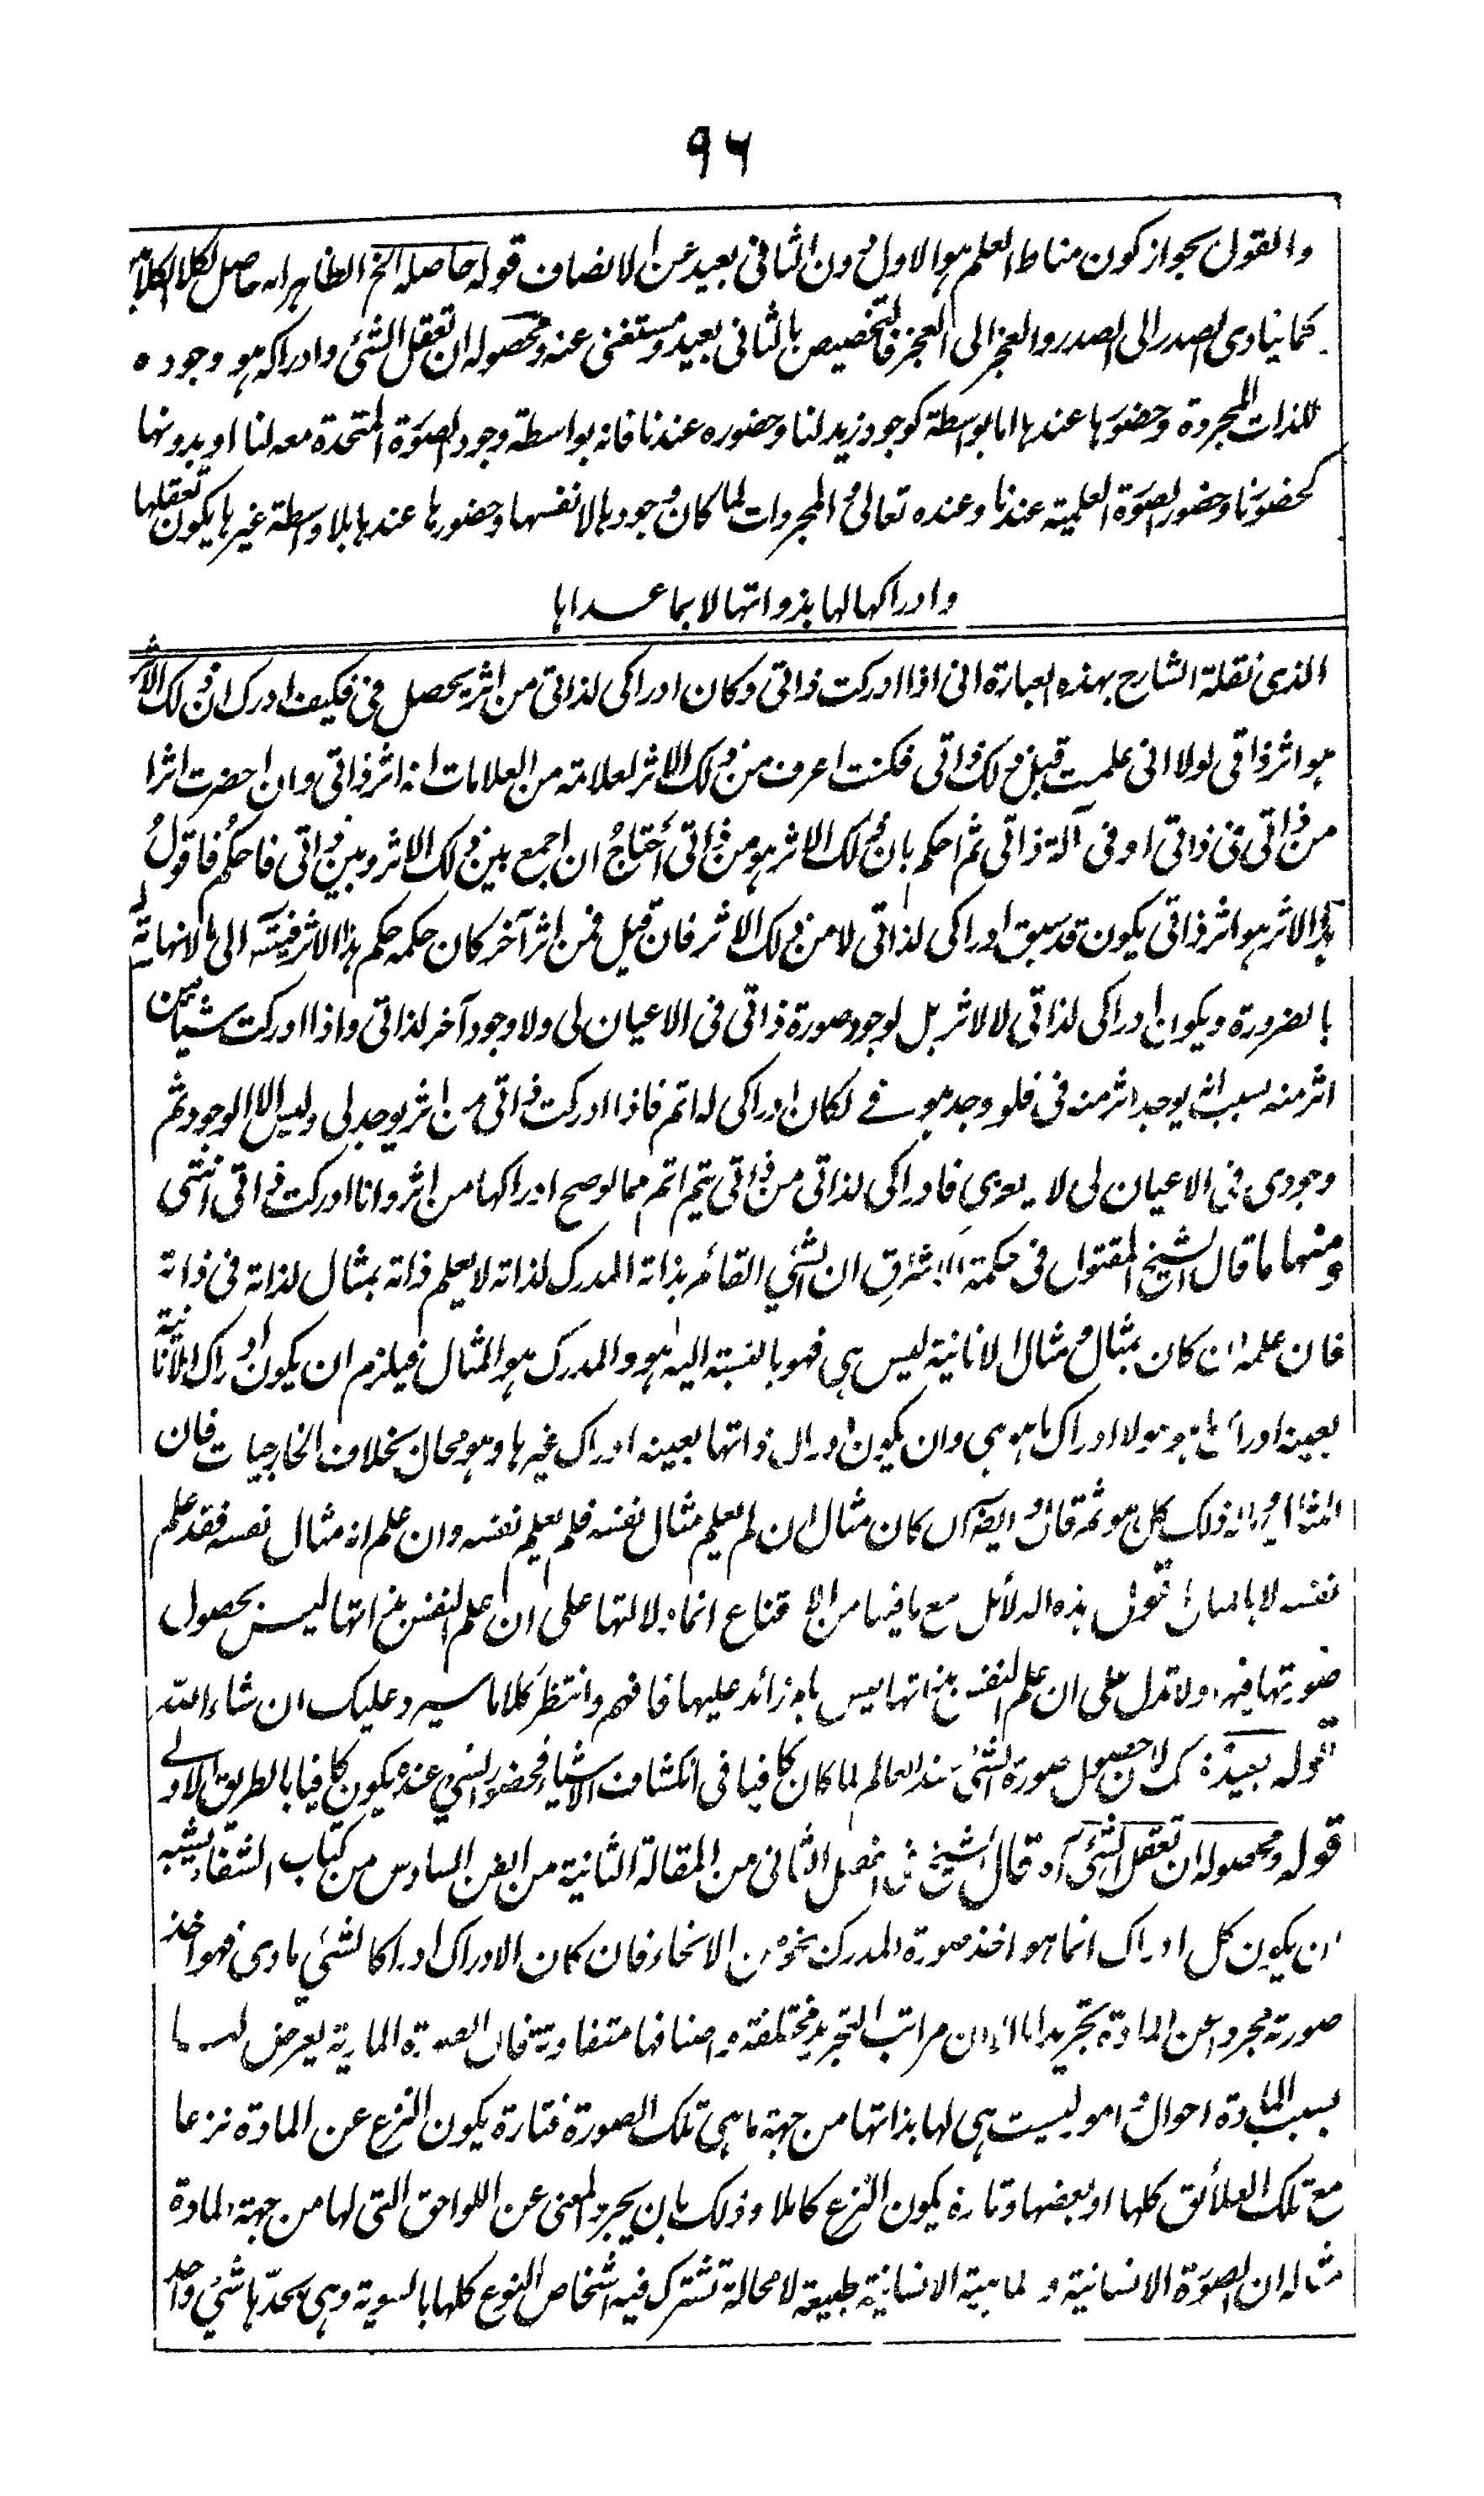 ٩٦
والقول بجواز كون مناط العلم هو الاول دون الثاني بعيد عن الانصاف قوله حاصله الخ الظاهر انه حاصل لكلا الكلامين
كما ينادي الصدر الى الصدر والعجز الى العجز فالتخصيص بالثاني بعيد ومستغنى عنه ومحصوله ان تعقل الشئ وادراكه هو وجوده
للذات المجردة وحضورها عندها اما بواسطة كوجود زيد لنا وحضوره عندنا فانه بواسطة وجود الصورة المتحدة معه لنا او بدونها
كحضورنا وحضور الصورة العلمية عندنا وعنده تعالى والمجردات لما كان وجودها لانفسها وحضورها عندها بلا واسطة غيرها يكون تعقلها
وادراكها لها بذواتها لا بما عداها
الذي نقله الشارح بهذه العبارة اني اذا ادركت ذاتي وكان ادراكي لذاتي من اثر يحصل في فكيف ادرك ان ذلك الاثر
هو اثر ذاتي لولا اني علمت قبل ذلك ذاتي فكنت اعرف من ذلك الاثر لعلامة من العلامات انه اثر ذاتي وان احضرت اثرا
من ذاتي في ذاتي او في آلة ذاتي ثم احكم بان ذلك الاثر هو من ذاتي أحتاج ان اجمع بين ذلك الاثر وبين ذاتي فاحكم فاقول
هذا الاثر هو اثر ذاتي يكون قد سبق ادراكي لذاتي لا من ذلك الاثر فان قيل فمن اثر آخر كان حكمه حكم هذا الاثر فيتسـ الى لا نهاية
بالضرورة ويكون ادراكي لذاتي لا لاثر بل لوجود صورة ذاتي في الاعيان لي ولا وجود آخر لذاتي واذا ادركت شيئا من
اثر منه بسبب انه يوجد اثر منه في فلو وجد هو في لكان ادراكي له اتم فاذا ادركت ذاتي من اثر يوجد لي وليس الا الوجود ثم
وجودي في الاعيان لي لا يعزى فادراكي لذاتي من ذاتي يتم اتم مما لو صح ادراكها من اثر وانا ادركت ذاتي انتهى
ومنها ما قال الشيخ المقتول في حكمة الاشراق ان الشئ القائم بذاته المدرك لذاته لا يعلم ذاته بمثال لذاته في ذاته
فان علمه ان كان بمثال ومثال الانانية ليس هي فهو بالنسبة اليه هو والمدرك هو المثال فيلزم ان يكون ادراك الانانية
بعينه ادراك ما هو هو لا ادراك ما هو هي وان يكون ادراك ذاتها بعينه ادراك غيرها وهو محال بخلاف الخارجيات فان
المثال وما له ذلك كل هو ثم قال وايضا ان كان مثال ان لم يعلم مثال نفسه فلم يعلم نفسه وان علم انه مثال نفسه فقد علم
نفسه لا بالمثال اقول هذه الدلائل مع ما فيها من الاقناع انما دلالتها على ان علم النفس بذاتها ليس بحصول
صورتها فيه ولا تدل على ان علم النفس بذاتها ليس بامر زائد عليها فافهم وانتظر كلاما سيرد عليك ان شاء الله
قوله بعيد لان حصول صورة الشئ عند العالم لما كان كافيا في انكشاف الاشياء فحضور الشئ عنده يكون كافيا بالطريق الاولى
قوله ومحصوله ان تعقل الشئ آه قال الشيخ في الفصل الثاني من المقالة الثانية من الفن السادس من كتاب الشفاء يشبه
ان يكون كل ادراك انما هو اخذ صورة المدرك بنحو من الانحاء فان كان الادراك ادراكا لشئ مادي فهو اخذ
صورته مجردا عن المادة تجريدا ما الا ان مراتب التجريد مختلفة واصنافها متفاوتة فان الصورة المادية يعرض لها
بسبب المادة احوال وامور ليست هي لها بذاتها من جهة ما هي تلك الصورة فتارة يكون النزع عن المادة نزعا
مع تلك العلائق كلها او بعضها وتارة يكون النزع كاملا وذلك بان يجرد المعنى عن اللواحق التي لها من جهة المادة
مثاله ان الصورة الانسانية والماهية الانسانية طبيعة لا محالة تشترك فيه اشخاص النوع كلها بالسوية وهي بحدها شئ واحد